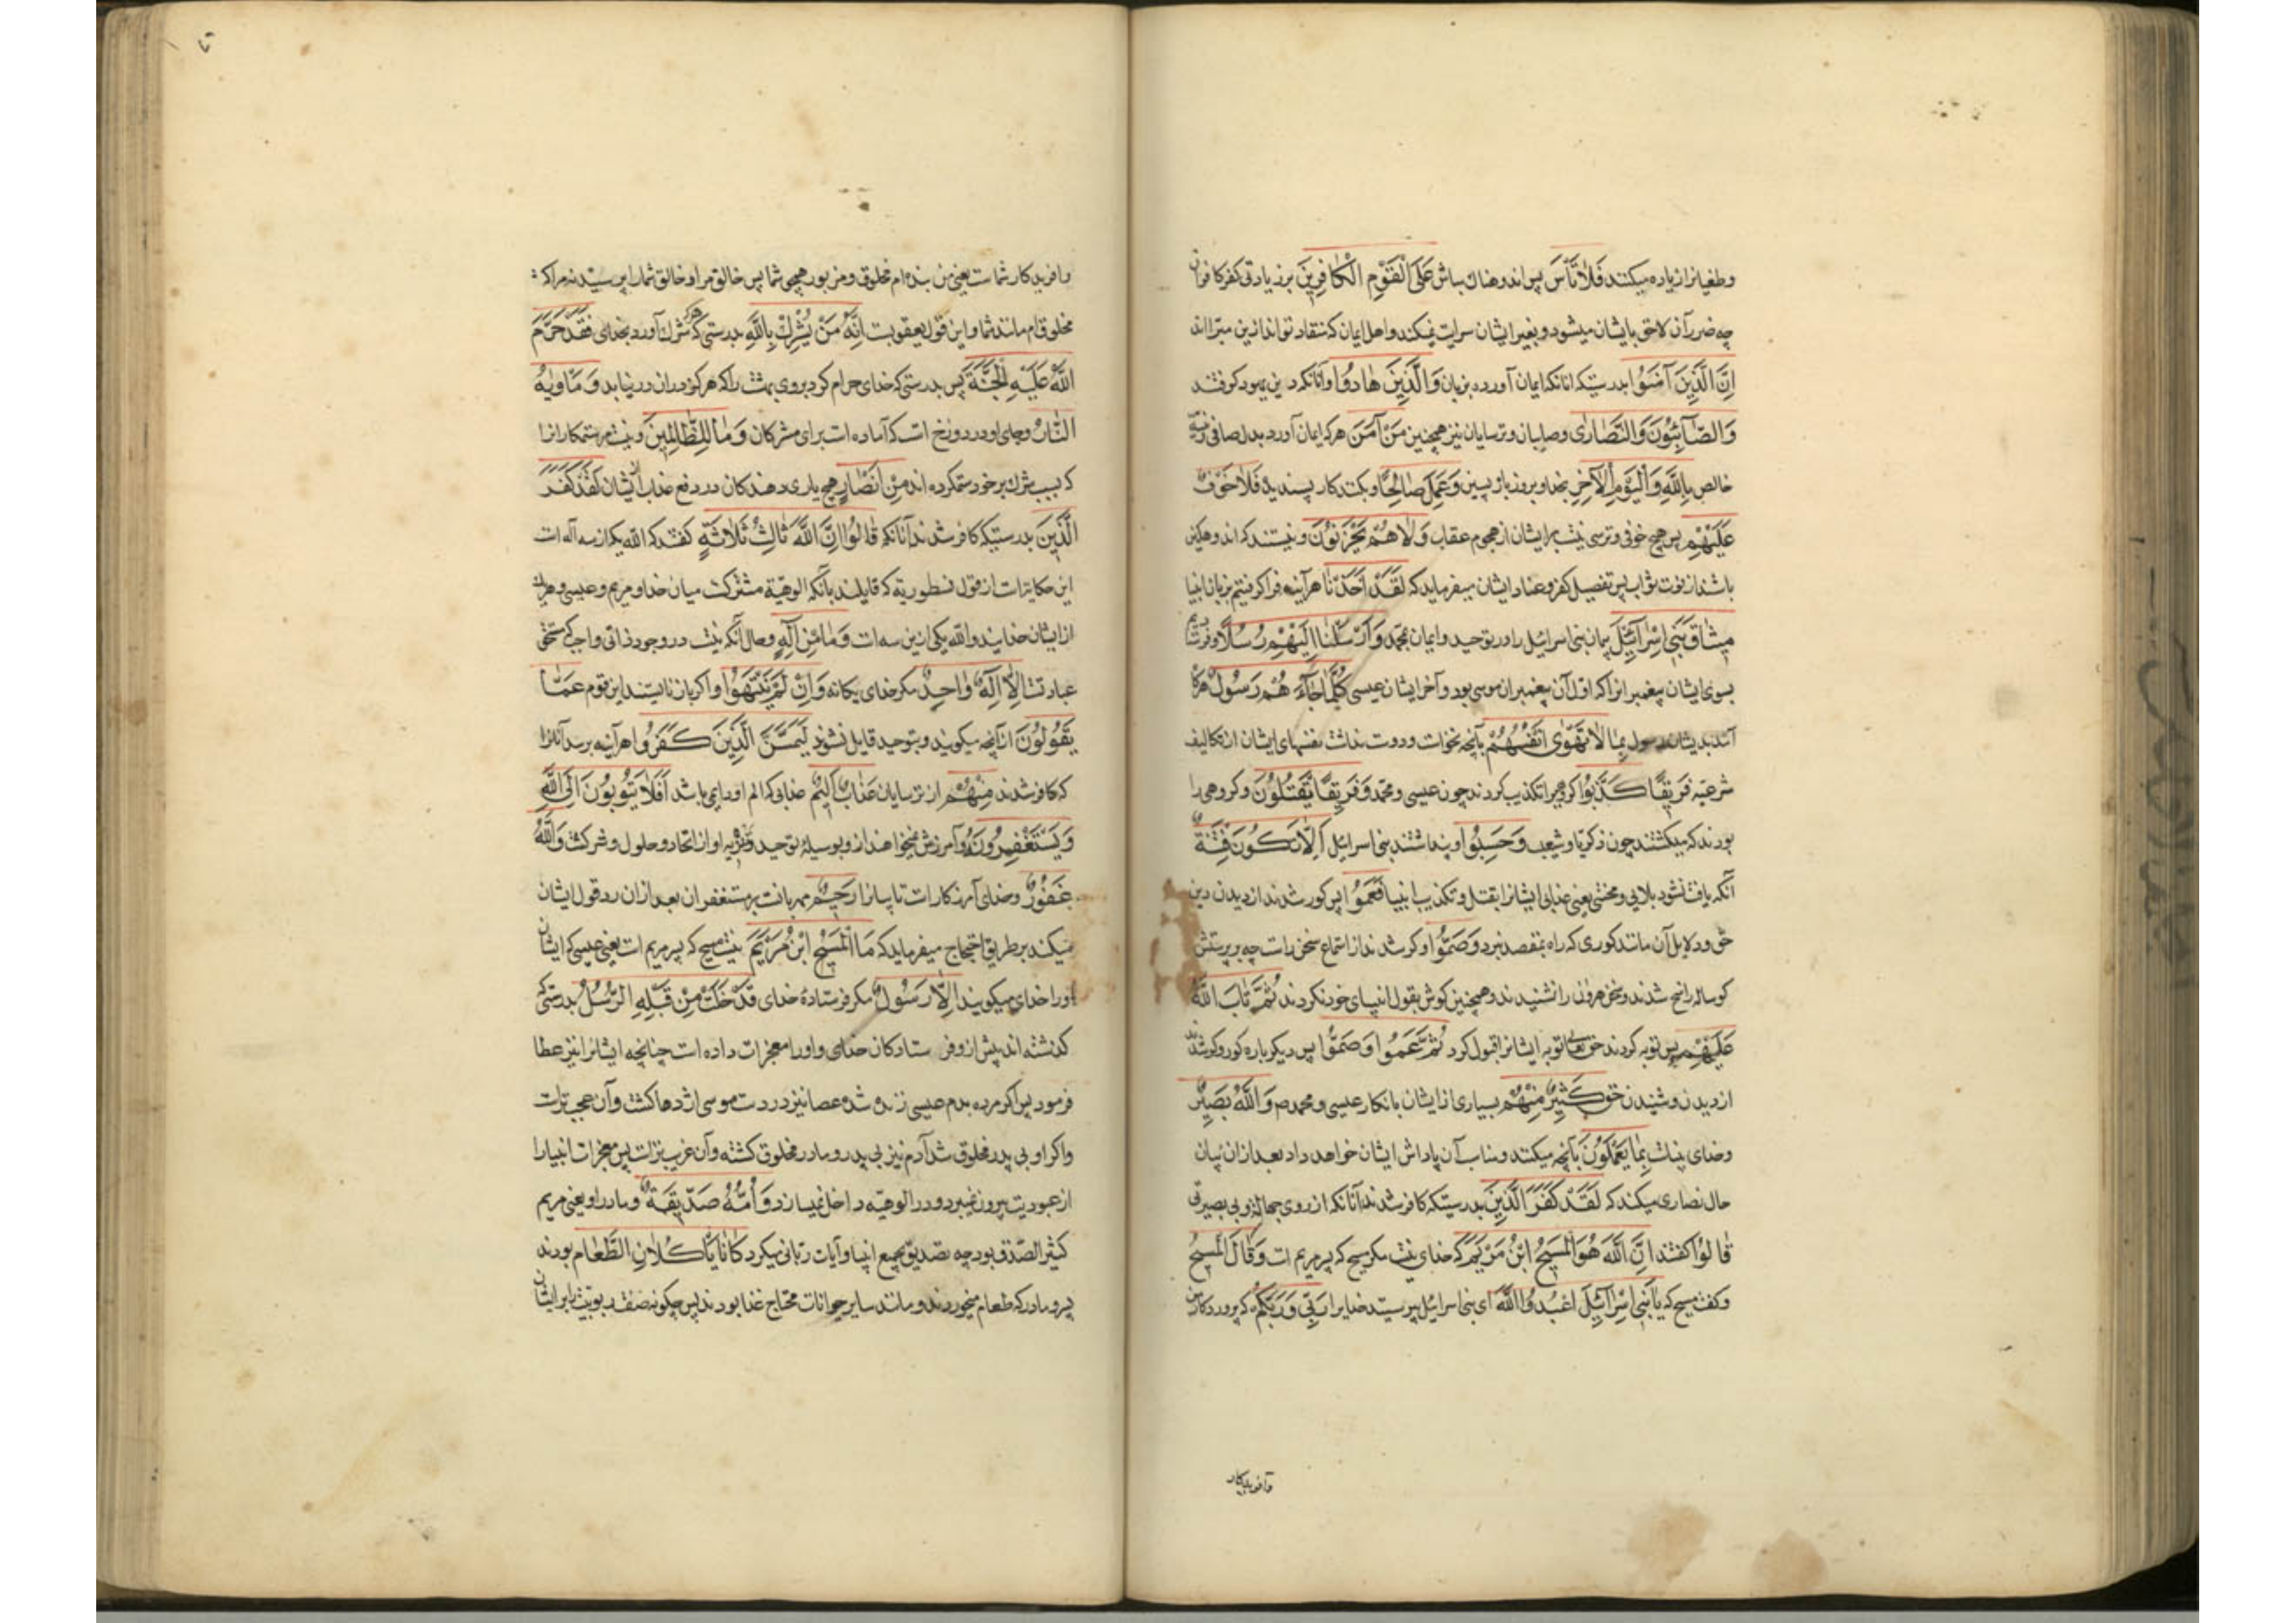 وطغیانرا زیاده میکنند فَلَا تَأْسَ پس اندوهناك مباش عَلَى الْقَوْمِ الْكَافِرِينَ بر زیادتی کفر کافران
چه ضرر آن لاحق بایشان میشود و بغیر ایشان سرایت نمیکند و اهل ایمان که منقاد تواند ازین مبرا اند
اِنَّ الَّذِينَ آمَنُوا بدرستیکه انانکه ایمان آورده بزبان وَالَّذِينَ هَادُوا و آنانکه دین یهود گرفتند
وَالصَّآبِئُونَ وَالنَّصَارٰى وصابیان و ترسایان نیز همچنین مَنْ آمَنَ هرکه ایمان آورد بدل صافی
خالص بِاللّٰهِ وَالْيَوْمِ الْآخِرِ بخدا و بروز بازپسین وَعَمِلَ صَالِحًا و بکند کار پسندیده فَلَا خَوْفٌ
عَلَيْهِمْ پس هیچ خوفی و ترسی نیست بر ایشان از هجوم عقاب وَلَا هُمْ يَحْزَنُونَ و نیستند که اندوهگین
باشند از فوت ثواب پس تفصیل کفر و عناد ایشان میفرماید که لَقَدْ اَخَذْنَا هرآینه فرا گرفتیم بزبان انبیا
مِيثَاقَ بَنِي اِسْرَآئِيلَ پیمان بنی اسرائیل را در توحید و ایمان بمحمد وَاَرْسَلْنَا اِلَيْهِمْ رُسُلًا و فرستادیم
بسوی ایشان پیغمبرانرا که اول آن پیغمبران موسی بود و آخر ایشان عیسی كُلَّمَا جَآءَهُمْ رَسُولٌ هرگاه
آمد بدیشان رسول بِمَا لَا تَهْوٰى اَنْفُسُهُمْ بآنچه نخواست و دوست نداشت نفسهای ایشان از تکالیف
شرعیه فَرِيقًا كَذَّبُوا گروهیرا تکذیب کردند چون عیسی و محمد وَفَرِيقًا يَقْتُلُونَ و گروهی را
بودند که میکشتند چون زکریا و شعیب وَحَسِبُوا و پنداشتند بنی اسرائیل اَلَّا تَكُونَ فِتْنَةٌ
آنکه یافت نشود بلایی و محنتی یعنی عذابی ایشانرا بقتل و تکذیب انبیا فَعَمُوا پس کور شدند از دیدن دین
حق و دلایل آن مانند کوری که راه بمقصد نبرد وَصَمُّوا و کر شدند از استماع سخن راست چه بپرستش
گوساله راضی شدند و سخن هرون را نشنیدند و همچنین گوش بقول انبیای خود نکردند ثُمَّ تَابَ اللّٰهُ
عَلَيْهِمْ پس توبه کردند حق تعالی توبه ایشانرا قبول کرد ثُمَّ عَمُوا وَصَمُّوا پس دیگر باره کور و کر شدند
از دیدن و شنیدن حق كَثِيرٌ مِنْهُمْ بسیاری از ایشان بانکار عیسی و محمد ص وَاللّٰهُ بَصِيرٌ
وخدای بیناست بِمَا يَعْمَلُونَ بآنچه میکنند و مناسب آن پاداش ایشان خواهد داد بعد ازان بیان
حال نصاری میکند که لَقَدْ كَفَرَ الَّذِينَ بدرستیکه کافر شدند آنانکه از روی جهالت و بی بصیرتی
قَالُوا گفتند اِنَّ اللّٰهَ هُوَ الْمَسِيحُ ابْنُ مَرْيَمَ که خدای نیست مگر مسیح که پسر مریم است وَقَالَ الْمَسِيحُ
وگفت مسیح که يَا بَنِي اِسْرَآئِيلَ اعْبُدُوا اللّٰهَ ای بنی اسرائیل بپرستید خدایرا رَبِّي وَرَبَّكُمْ که پروردگار من
وآفریدکار
وآفریدکار شماست یعنی من بنده ام مخلوق و مربوب همچو شما پس خالق مرا و خالق شما را بپرستید نه مرا که
مخلوق ام مانند شما و این قول یعقوبیست اِنَّهُ مَنْ يُشْرِكْ بِاللّٰهِ بدرستی که هرکه شرك آورد بخدای فَقَدْ حَرَّمَ
اللّٰهُ عَلَيْهِ الْجَنَّةَ پس بدرستی که خدای حرام کرد بروی بهشت را که هرگز دران درنیاید وَمَأْوٰيهُ
النَّارُ وجای او در دوزخ است که آماده است برای مشرکان وَمَا لِلظَّالِمِينَ ونیست مر ستمکارانرا
که بسبب شرك بر خود ستم کرده اند مِنْ اَنْصَارٍ هیچ یاری دهندکان در دفع عذاب از ایشان لَقَدْ كَفَرَ
الَّذِينَ بدرستیکه کافر شدند آنانکه قَالُوا اِنَّ اللّٰهَ ثَالِثُ ثَلَاثَةٍ گفتند که الله یکی از سه آله است
این حکایتست از قول نسطوریه که قایلند بآنکه الوهیة مشترکست میان خدا و مریم و عیسی و هریك
از ایشان خدایند والله یکی ازین سه است وَمَا مِنْ اِلٰهٍ وحال آنکه نیست در وجود ذاتی واجب که مستحق
عبادتست اِلَّا اِلٰهٌ وَاحِدٌ مگر خدای یکانه وَاِنْ لَمْ يَنْتَهُوا واگر باز نایستند این قوم عَمَّا
يَقُولُونَ از آنچه میگویند و بتوحید قایل نشوند لَيَمَسَّنَّ الَّذِينَ كَفَرُوا هرآینه برسد آنانرا
که کافر شدند مِنْهُمْ از ترسایان عَذَابٌ اَلِيمٌ عذابی که الم او دایمی باشد اَفَلَا يَتُوبُونَ اِلَى اللّٰهِ
وَيَسْتَغْفِرُونَهُ و آمرزش نمیخواهند ازو بوسیلهٔ توحید و تنزیه او از اتحاد و حلول و شرکت وَاللّٰهُ
غَفُورٌ وخدای آمرزکارست تایبانرا رَحِيمٌ مهربانست بر مستغفران بعد ازان رد قول ایشان
میکند بر طریق احتجاج میفرماید که مَا الْمَسِيحُ ابْنُ مَرْيَمَ نیست مسیح که پسر مریم است یعنی عیسی که ایشان
اورا خدای میگویند اِلَّا رَسُولٌ مگر فرستادهٔ خدای قَدْ خَلَتْ مِنْ قَبْلِهِ الرُّسُلُ بدرستی که
گذشته اند پیش ازو فرستادکان خدای و اورا معجزات داده است چنانچه ایشانرا نیز عطا
فرمود پس اگر مرده بدم عیسی زنده شد عصا نیز در دست موسی اژدها گشت و آن عجب ترست
واگر او بی پدر مخلوق شد آدم نیز بی پدر و مادر مخلوق گشته و آن غریب ترست پس معجزات انبیا را
از عبودیت بیرون نمیبرد و در الوهیه داخل نمیسازد وَاُمُّهُ صِدِّيقَةٌ و مادر او یعنی مریم
کثیر الصدق بود چه تصدیق جمیع انبیا و آیات ربانی میکرد كَانَا يَأْكُلَانِ الطَّعَامَ بودند
پسر و مادر که طعام میخوردند و مانند سایر حیوانات محتاج غذا بودند پس چگونه صفت ربوبیت بر ایشان